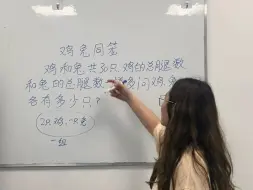 鸡兔同笼
鸡和兔共30只,鸡的总腿数
和兔的总腿数一样多问鸡兔
各有多少只?
2只鸡,一只兔
一组